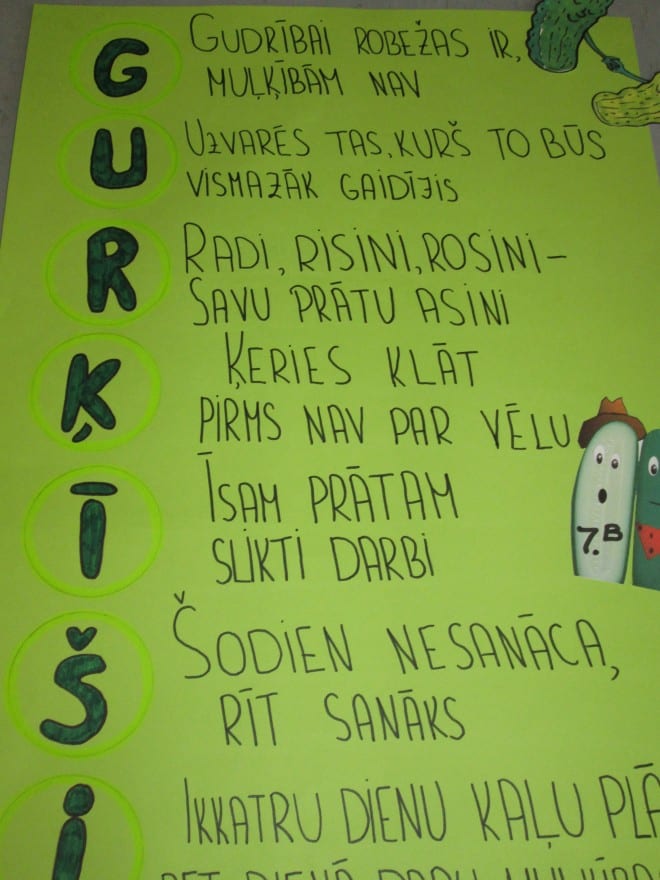 G
GUDRĪBAI ROBEŽAS IR,
MUĻĶĪBĀM NAV
U
UZVARĒS TAS, KURŠ TO BŪS
VISMAZĀK GAIDĪJIS
R
RADI, RISINI, ROSINI –
SAVU PRĀTU ASINI
Ķ
ĶERIES KLĀT
PIRMS NAV PAR VĒLU
Ī
ĪSAM PRĀTAM
SLIKTI DARBI
7.B
Š
ŠODIEN NESANĀCA,
RĪT SANĀKS
i
IKKATRU DIENU KAĻU PLĀ